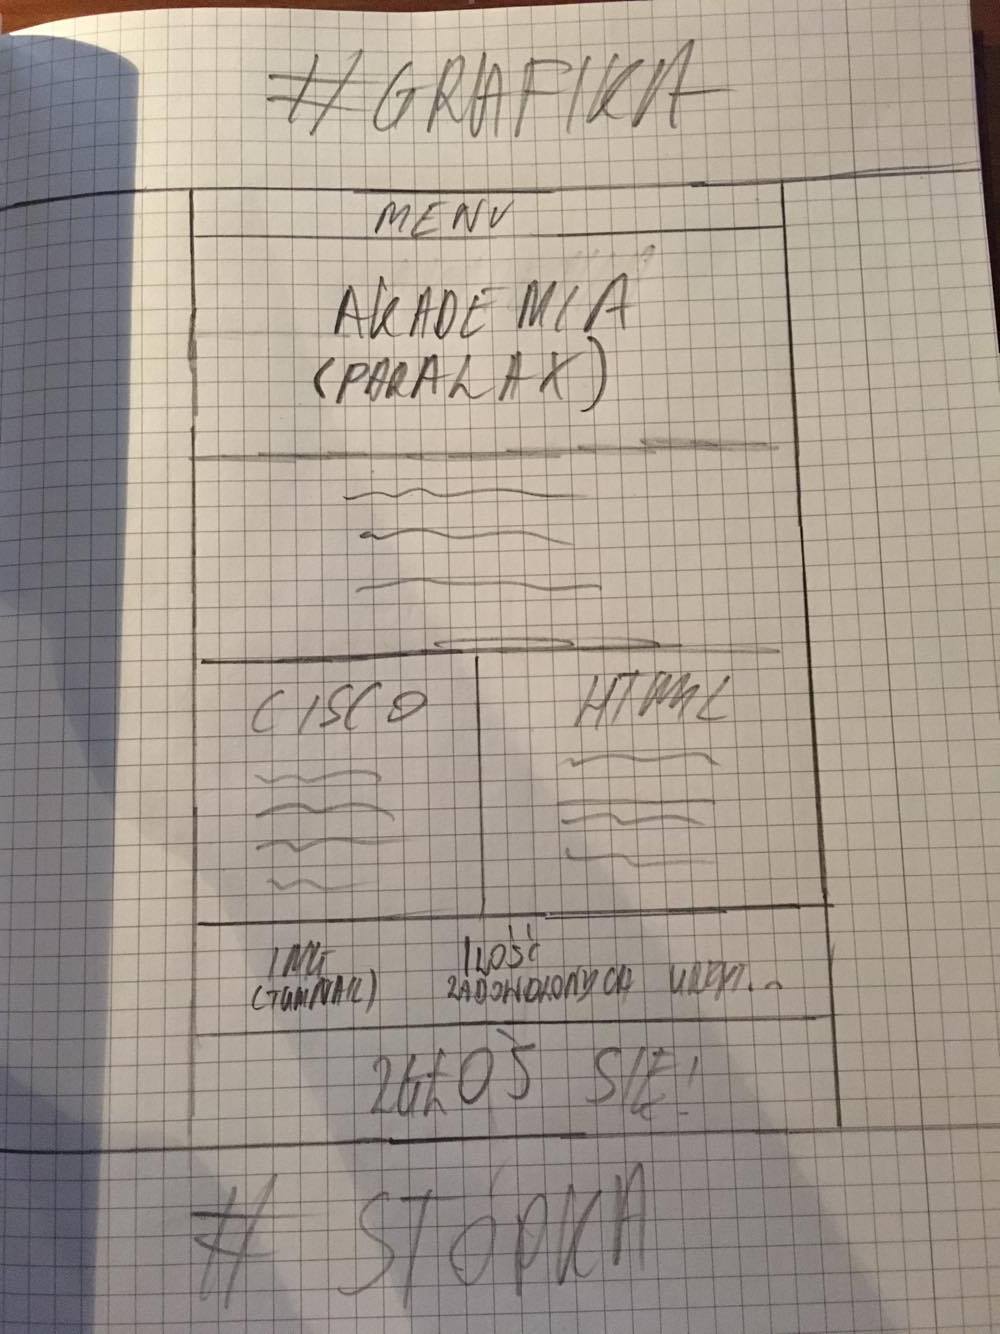 #GRAFIKA
MENU
AKADEMIA
(PARALAX)
CISCO
HTML
IMG
ILOŚĆ
ZADOWOLONYCH
ZGŁOŚ SIĘ!
# STÓPKA